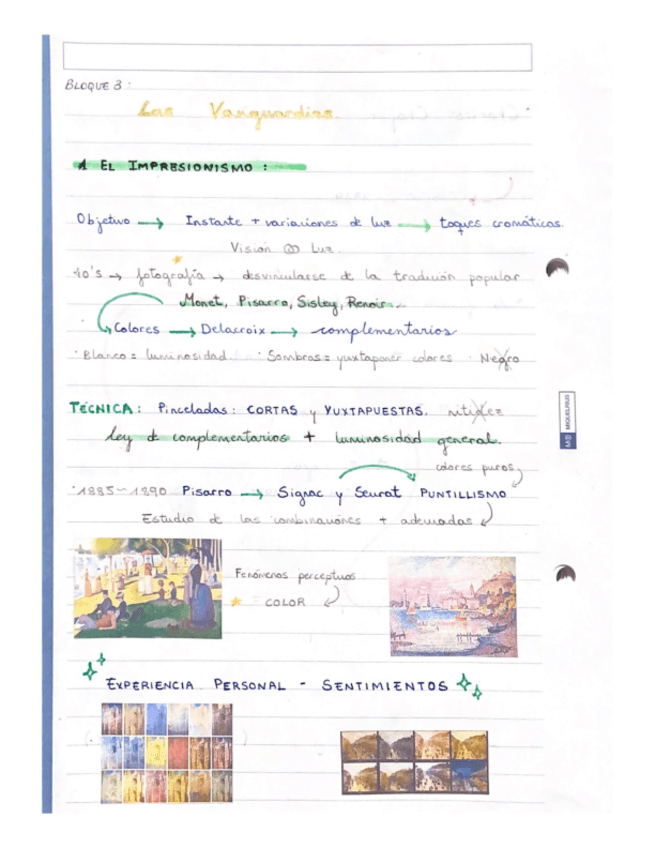 BLOQUE 3 :
Las Vanguardias.
1 EL IMPRESIONISMO :
Objetivo → Instante + variaciones de luz → toques cromáticos.
Visión ∞ Luz.
40's → fotografía → desvincularse de la tradición popular
Monet, Pisarro, Sisley, Renoir...
Colores → Delacroix → complementarios
· Blanco = luminosidad. · Sombras = yuxtaponer colores · Negro
TÉCNICA: Pinceladas: CORTAS y YUXTAPUESTAS. nitidez
ley de complementarios + luminosidad general.
colores puros
· 1885-1890 Pisarro → Signac y Seurat PUNTILLISMO
Estudio de las combinaciones + adecuadas
Fenómenos perceptivos
COLOR
EXPERIENCIA PERSONAL - SENTIMIENTOS
MIQUELRIUS